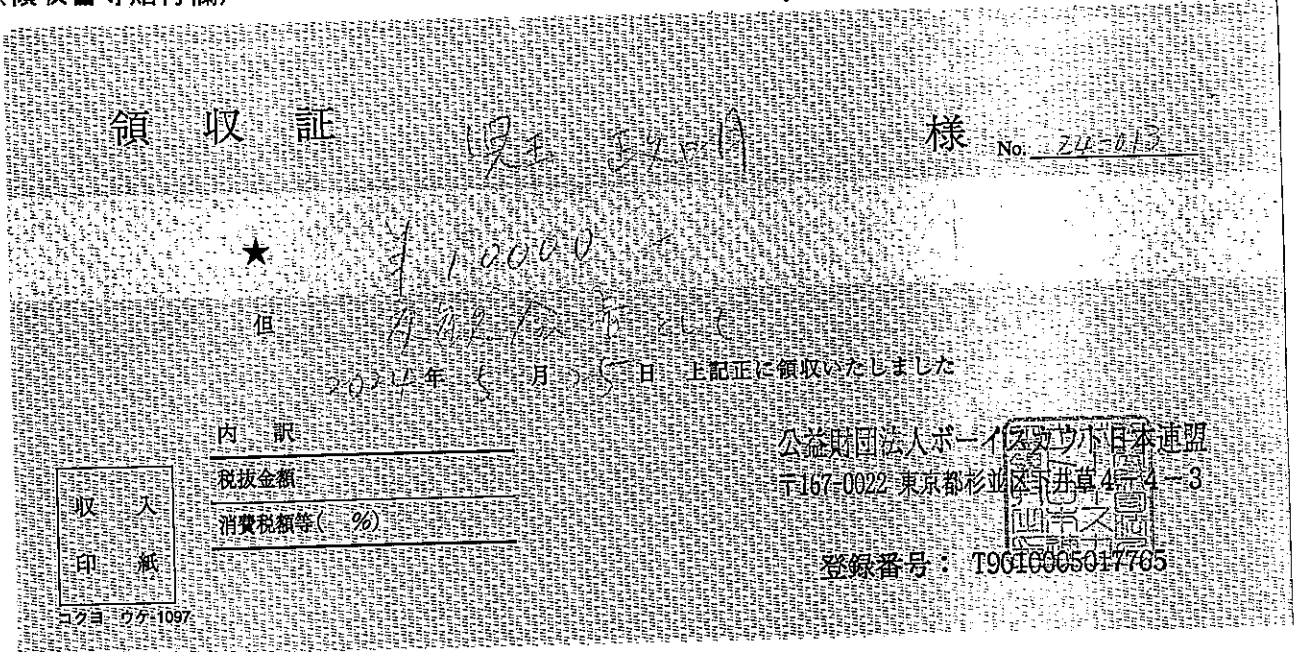 領収証 様 No. 24-013
★ ¥10000-
但 会費として
2024年5月25日 上記正に領収いたしました
内訳
税抜金額
消費税額等( %)
収入
印紙
コクヨ ウケ-1097
公益財団法人ボーイスカウト日本連盟
〒167-0022 東京都杉並区下井草4-4-3
登録番号: T9010005017765